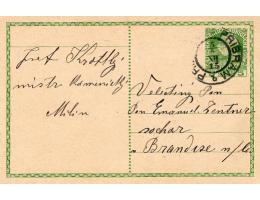 Jos Krottý
mistr Kamenický
Milín
PŘIBRAM
Velectěný Pan
Pan Emanuel Zentner
sochar
Brandise n/L